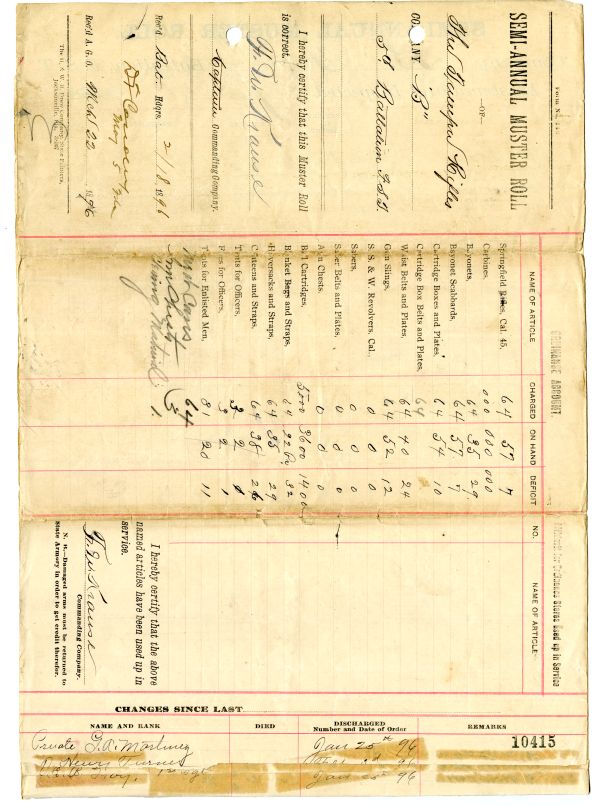 Form No.
SEMI-ANNUAL MUSTER ROLL
—OF—
The Tampa Rifles
COMPANY "B"
5th Battalion F.S.T.
I hereby certify that this Muster Roll
is correct.
F. W. Krause
Captain Commanding Company.
Rec'd Bat. Hdqrs. 2/8 1896
Rec'd A. G. O. Mch 22 1896
Jacksonville, Fla.
ORDNANCE ACCOUNT.
NAME OF ARTICLE CHARGED ON HAND DEFICIT
Springfield Rifles, Cal. 45, 64 57 7
Carbines, 000 000 000
Bayonets, 64 35 29
Bayonet Scabbards, 64 57 7
Cartridge Boxes and Plates, 64 54 10
Cartridge Box Belts and Plates, 64
Waist Belts and Plates, 64 40 24
Gun Slings, 64 52 12
S. S. & W. Revolvers, Cal., 0 0 0
Sabers, 0 0 0
Saber Belts and Plates, 0 0 0
Arm Chests, 0 0 0
Ball Cartridges, 5000 3600 1400
Blanket Bags and Straps, 64 32
Haversacks and Straps, 64 35 29
Canteens and Straps, 64 38 26
Tents for Officers, 3 2 1
Flies for Officers, 3 2 1
Tents for Enlisted Men, 31 20 11
Ordnance Stores used up in Service
NO. NAME OF ARTICLE
I hereby certify that the above
named articles have been used up in
service.
F. W. Krause
Commanding Company.
N. B.—Damaged arms must be returned to
State Armory in order to get credit therefor.
CHANGES SINCE LAST
NAME AND RANK DIED DISCHARGED Number and Date of Order REMARKS
Private G. A. Martinez Jan 25th 96
Henry Turner
Jan 96
10415